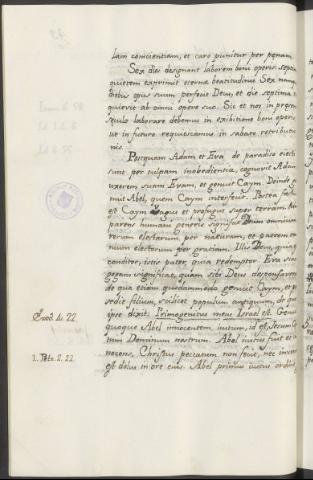 lam conscientiam, et caro punitur per penam.
Sex dies designant laborem boni operis: septima
quietem exprimit eternæ beatitudinis. Sex namque
diebus opus suum perfecit Deus, et die septima re
quievit ab omni opere suo. Sic et nos in presenti
seculo laborare debemus in exibitione boni operis
ut in futuro requiescamus in sabato retributio
nis.
Postquam Adam et Eva de paradiso eiecti
sunt per culpam inobedientia, cognovit Adam
uxorem suam Evam, et genuit Caym. Deinde ge
nuit Abel, quem Caym interfecit. Postea factus
est Caym vagus et profugus super terram. Adam
parens humani generis significat Deum omnium
rerum electarum per naturam, et patrem om
nium electorum per gratiam. Illis Deus, quia
conditor, istis pater, quia redemptor. Eva sina
gogam significat, quam sibi Deus desponsavit
de qua etiam quodammodo genuit Caym, et pos
sedit filium, scilicet populum antiquum, de quo
Exod. 4. 22. ipse dixit: Primogenitus meus Israel est. Genuit
quoque Abel innocentem, iustum, id est, Iesum Chris
tum Dominum nostrum. Abel iustus fuit et in
nocens, Christus peccatum non fecit, nec inventus
1. Petr. 2. 22. est dolus in ore eius. Abel primus iustus